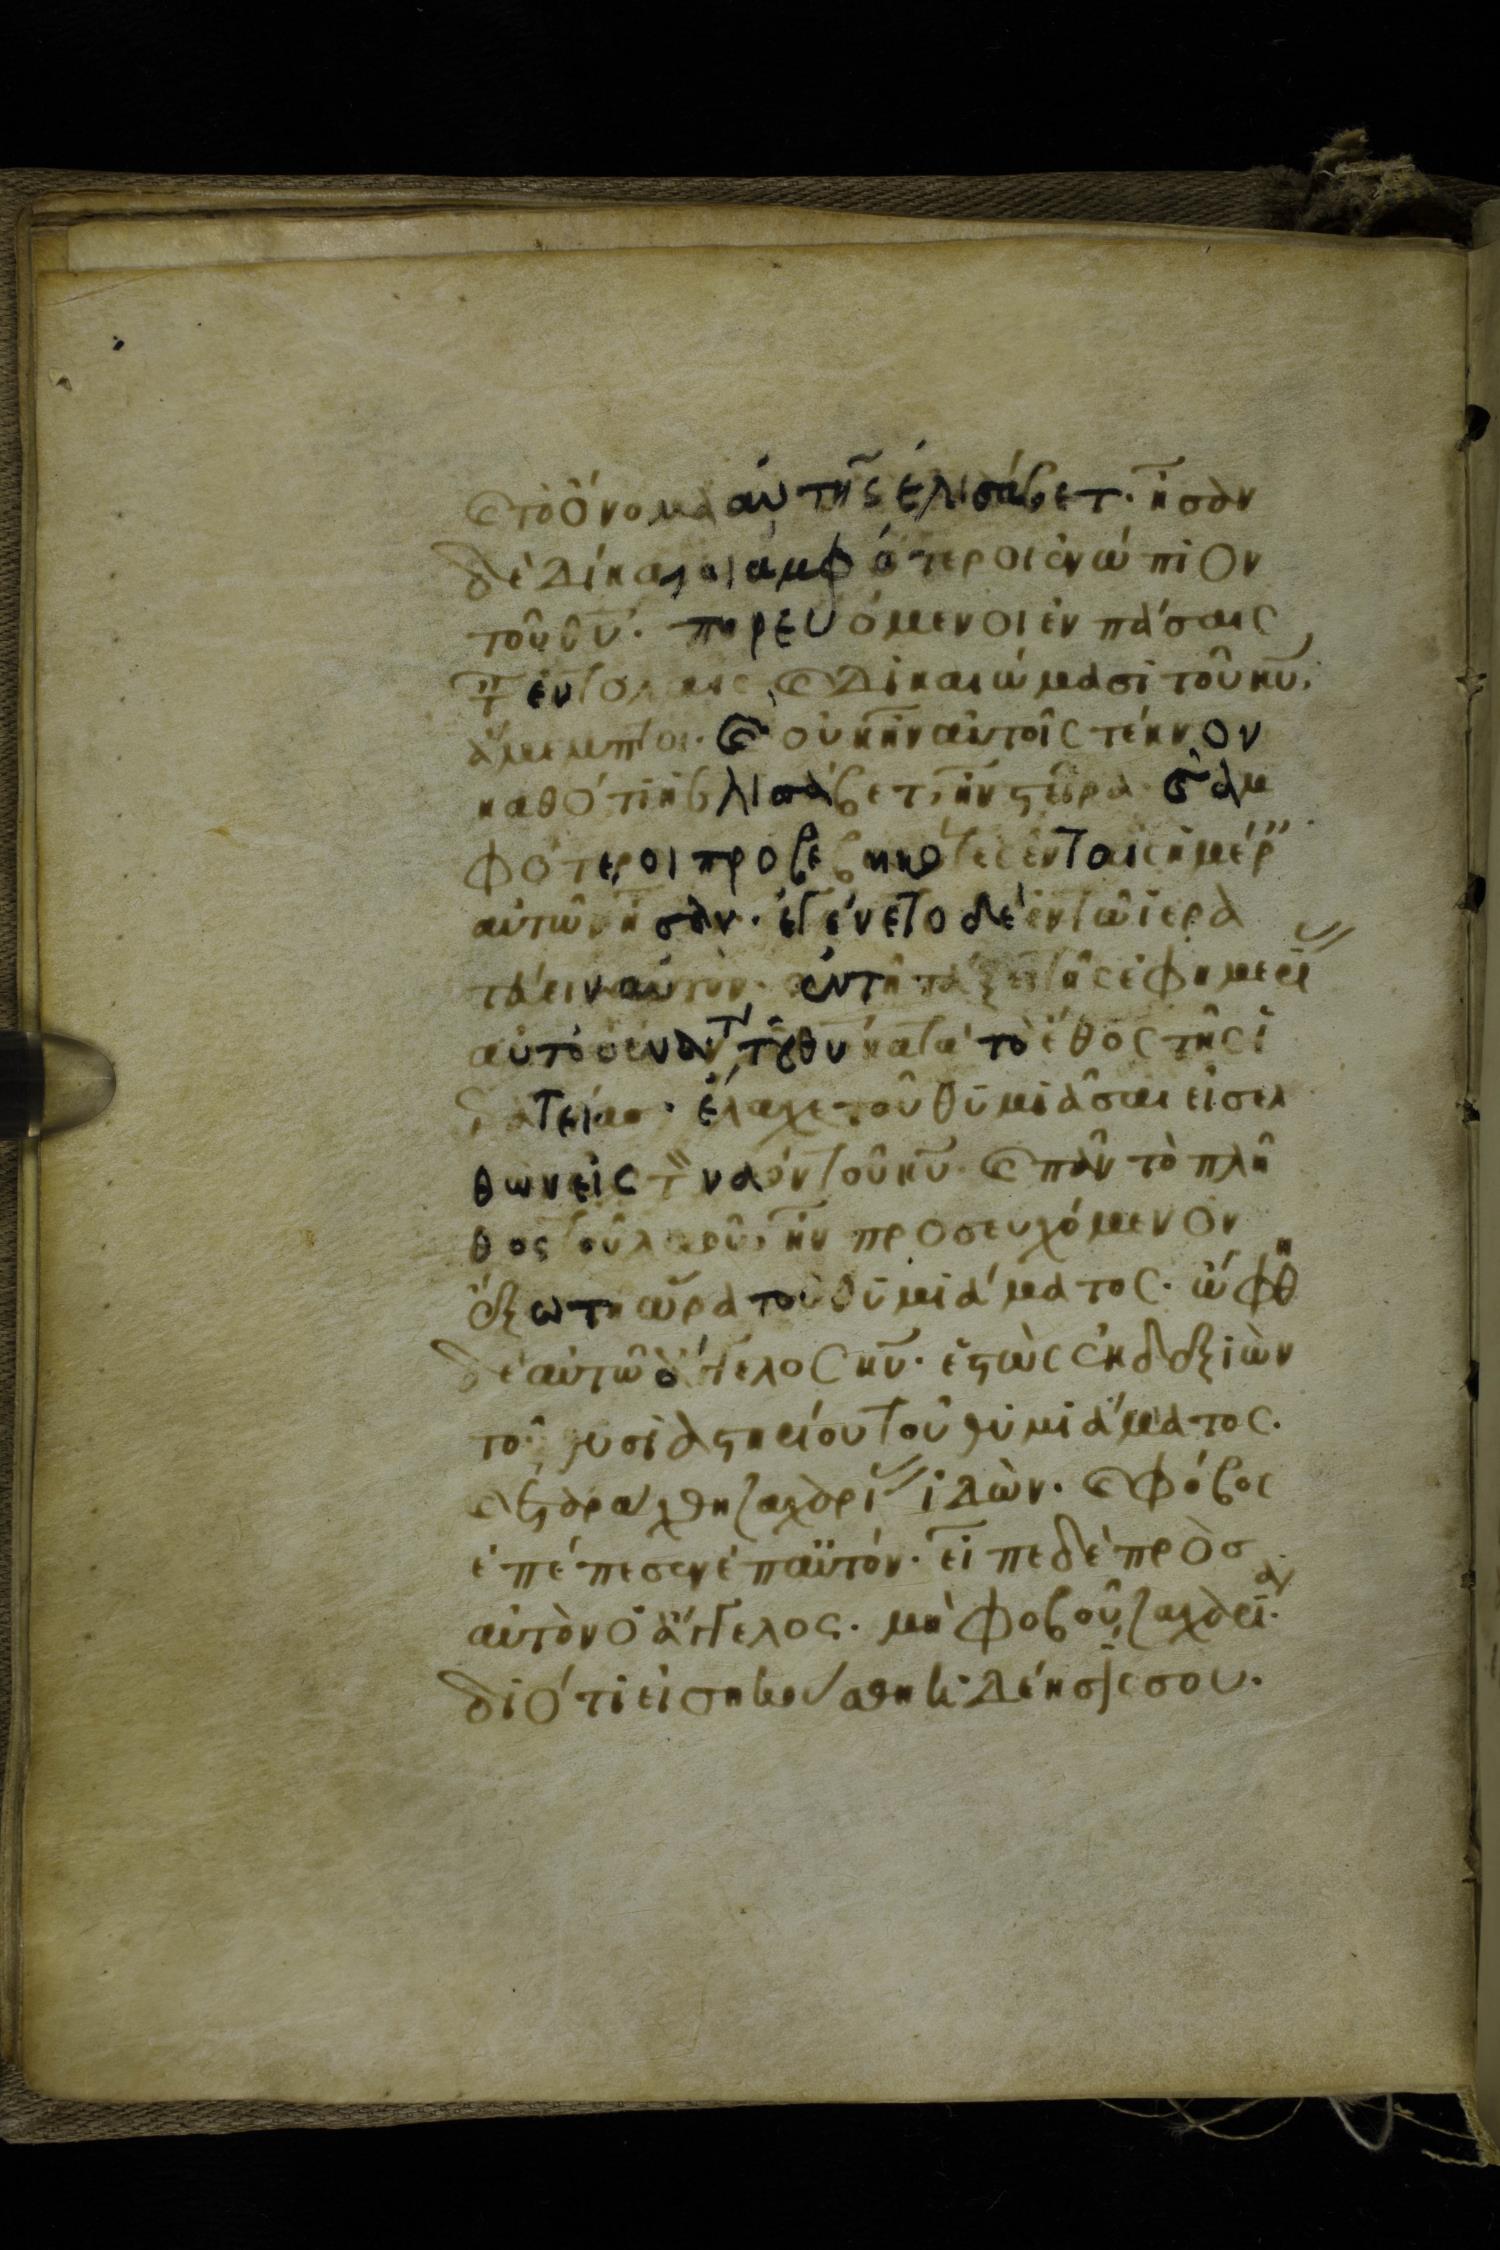 καὶ τὸ ὄνομα αὐτῆς ἐλισάβετ· ἦσαν
δὲ δίκαιοι ἀμφότεροι ἐνώπιον
τοῦ θῦ· πορευόμενοι ἐν πάσαις
τ ἐντολαῖς καὶ δικαιώμασι τοῦ κυ,
ἄμεμπτοι· καὶ οὐκ ἦν αὐτοῖς τέκνον
καθότι ἡ ἐλισάβετ, ἦν στεῖρα· καὶ ἀμ
φότεροι προβεβηκότες ἐν ταῖς ἡμέρ
αὐτῶν ἦσαν· ἐγένετο δὲ ἐν τῶ ἱερα
τεύειν αὐτὸν· ἐν τῆ τάξει τῆς ἐφημερι
αὐτοῦ ἔναντ τοῦ θυ κατὰ τὸ ἔθος τῆς ἱ
ερατείας· ἔλαχε τοῦ θυμιᾶσαι εἰσελ
θὼν εἰς τ ναὸν τοῦ κυ· καὶ πᾶν τὸ πλῆ
θος τοῦ λαοῦ, ἦν προσευχόμενον
ἔξω τῆ ὥρα τοῦ θυμιάματος· ὤφθη
δὲ αὐτῶ ἄγγελος κυ· ἑστὼς ἐκ δεξιῶν
τοῦ θυσιαστηρίου τοῦ θυμιάματος·
καὶ ἐταράχθη ζαχαρί ἰδών· καὶ φόβος
ἐπέπεσεν ἐπ αὐτόν· εἶπε δὲ πρὸσ
αὐτὸν ὁ ἄγγελος· μὴ φοβοῦ, ζαχαρία·
διότι εἰσηκούσθη ἡ δέησίς σου·